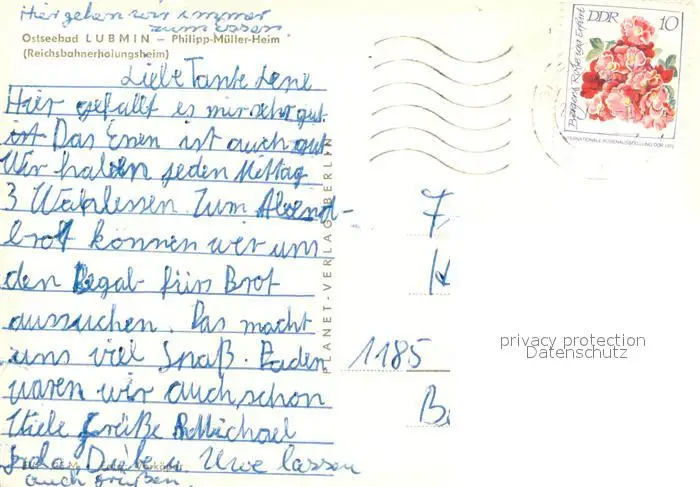 Hier gehen wir immer
zum essen.
Ostseebad LUBMIN – Philipp-Müller-Heim
(Reichsbahnerholungsheim)
DDR 10
Liebe Tante Lene
Hier gefällt es mir sehr gut.
ist Das Essen ist auch gut
Wir haben jeden Mittag
3 Wahlessen. Zum Abend-
brot können wir uns
den Belag fürs Brot
aussuchen. Das macht
uns viel Spaß. Baden
waren wir auch schon
Viele Grüße Michael
Uwe lassen
auch grüßen.
PLANET-VERLAG BERLIN
1185
privacy protection
Datenschutz